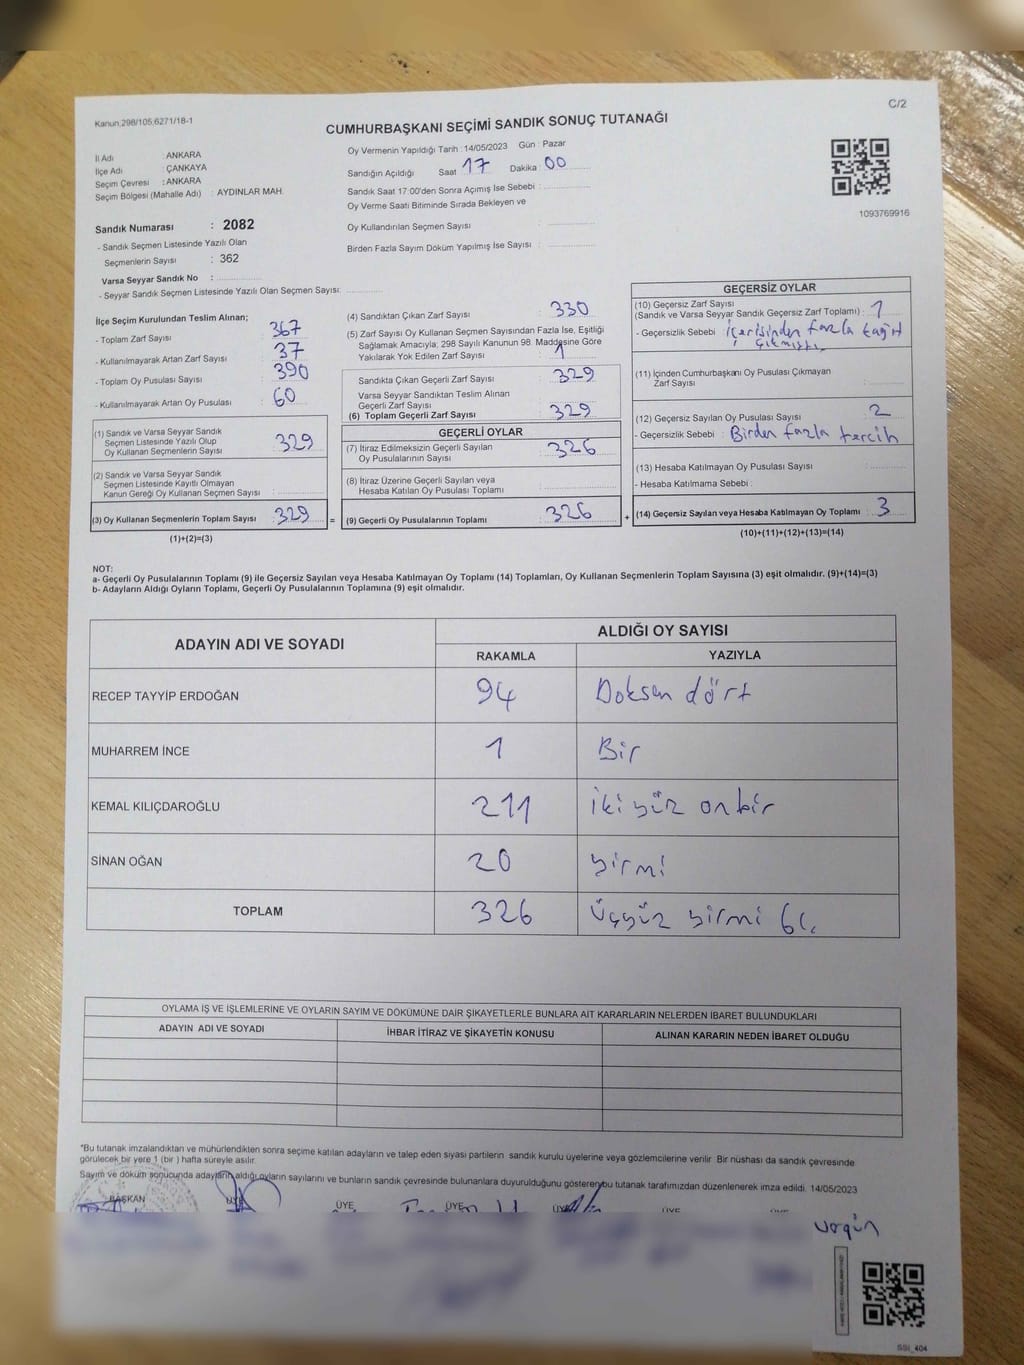 C/2
Kanun,298/105,6271/18-1
CUMHURBAŞKANI SEÇİMİ SANDIK SONUÇ TUTANAĞI
İl Adı : ANKARA
İlçe Adı : ÇANKAYA
Seçim Çevresi : ANKARA
Seçim Bölgesi (Mahalle Adı) : AYDINLAR MAH.
Oy Vermenin Yapıldığı Tarih : 14/05/2023 Gün : Pazar
Sandığın Açıldığı Saat 17 Dakika : 00
Sandık Saat 17:00'den Sonra Açımış İse Sebebi :
Oy Verme Saati Bitiminde Sırada Bekleyen ve
Oy Kullandırılan Seçmen Sayısı :
Birden Fazla Sayım Döküm Yapılmış İse Sayısı :
1093769916
Sandık Numarası : 2082
- Sandık Seçmen Listesinde Yazılı Olan
Seçmenlerin Sayısı : 362
Varsa Seyyar Sandık No :
- Seyyar Sandık Seçmen Listesinde Yazılı Olan Seçmen Sayısı:
İlçe Seçim Kurulundan Teslim Alınan;
- Toplam Zarf Sayısı : 367
- Kullanılmayarak Artan Zarf Sayısı : 37
- Toplam Oy Pusulası Sayısı : 390
- Kullanılmayarak Artan Oy Pusulası : 60
(1) Sandık ve Varsa Seyyar Sandık
Seçmen Listesinde Yazılı Olup
Oy Kullanan Seçmenlerin Sayısı : 329
(2) Sandık ve Varsa Seyyar Sandık
Seçmen Listesinde Kayıtlı Olmayan
Kanun Gereği Oy Kullanan Seçmen Sayısı :
(3) Oy Kullanan Seçmenlerin Toplam Sayısı : 329 =
(1)+(2)=(3)
(4) Sandıktan Çıkan Zarf Sayısı : 330
(5) Zarf Sayısı Oy Kullanan Seçmen Sayısından Fazla İse, Eşitliği
Sağlamak Amacıyla; 298 Sayılı Kanunun 98. Maddesine Göre
Yakılarak Yok Edilen Zarf Sayısı : 1
Sandıkta Çıkan Geçerli Zarf Sayısı : 329
Varsa Seyyar Sandıktan Teslim Alınan
Geçerli Zarf Sayısı :
(6) Toplam Geçerli Zarf Sayısı : 329
GEÇERLİ OYLAR
(7) İtiraz Edilmeksizin Geçerli Sayılan
Oy Pusulalarının Sayısı : 326
(8) İtiraz Üzerine Geçerli Sayılan veya
Hesaba Katılan Oy Pusulası Toplamı :
(9) Geçerli Oy Pusulalarının Toplamı : 326 +
GEÇERSİZ OYLAR
(10) Geçersiz Zarf Sayısı
(Sandık ve Varsa Seyyar Sandık Geçersiz Zarf Toplamı) : 1
- Geçersizlik Sebebi : içerisinden fazla kağıt
çıkmıştı.
(11) İçinden Cumhurbaşkanı Oy Pusulası Çıkmayan
Zarf Sayısı :
(12) Geçersiz Sayılan Oy Pusulası Sayısı : 2
- Geçersizlik Sebebi : Birden fazla tercih
(13) Hesaba Katılmayan Oy Pusulası Sayısı :
- Hesaba Katılmama Sebebi :
(14) Geçersiz Sayılan veya Hesaba Katılmayan Oy Toplamı : 3
(10)+(11)+(12)+(13)=(14)
NOT:
a- Geçerli Oy Pusulalarının Toplamı (9) ile Geçersiz Sayılan veya Hesaba Katılmayan Oy Toplamı (14) Toplamları, Oy Kullanan Seçmenlerin Toplam Sayısına (3) eşit olmalıdır. (9)+(14)=(3)
b- Adayların Aldığı Oyların Toplamı, Geçerli Oy Pusulalarının Toplamına (9) eşit olmalıdır.
ADAYIN ADI VE SOYADI
ALDIĞI OY SAYISI
RAKAMLA YAZIYLA
RECEP TAYYİP ERDOĞAN 94 Doksan dört
MUHARREM İNCE 1 Bir
KEMAL KILIÇDAROĞLU 211 iki yüz onbir
SİNAN OĞAN 20 yirmi
TOPLAM 326 üçyüz yirmi 6
OYLAMA İŞ VE İŞLEMLERİNE VE OYLARIN SAYIM VE DÖKÜMÜNE DAİR ŞİKAYETLERLE BUNLARA AİT KARARLARIN NELERDEN İBARET BULUNDUKLARI
ADAYIN ADI VE SOYADI İHBAR İTİRAZ VE ŞİKAYETİN KONUSU ALINAN KARARIN NEDEN İBARET OLDUĞU
*Bu tutanak imzalandıktan ve mühürlendikten sonra seçime katılan adayların ve talep eden siyasi partilerin sandık kurulu üyelerine veya gözlemcilerine verilir. Bir nüshası da sandık çevresinde
görülecek bir yere 1 (bir ) hafta süreyle asılır.
Sayım ve döküm sonucunda adayların aldığı oyların sayılarını ve bunların sandık çevresinde bulunanlara duyurulduğunu gösteren bu tutanak tarafımızdan düzenlenerek imza edildi. 14/05/2023
BAŞKAN ÜYE ÜYE ÜYE ÜYE ÜYE
SSI_404